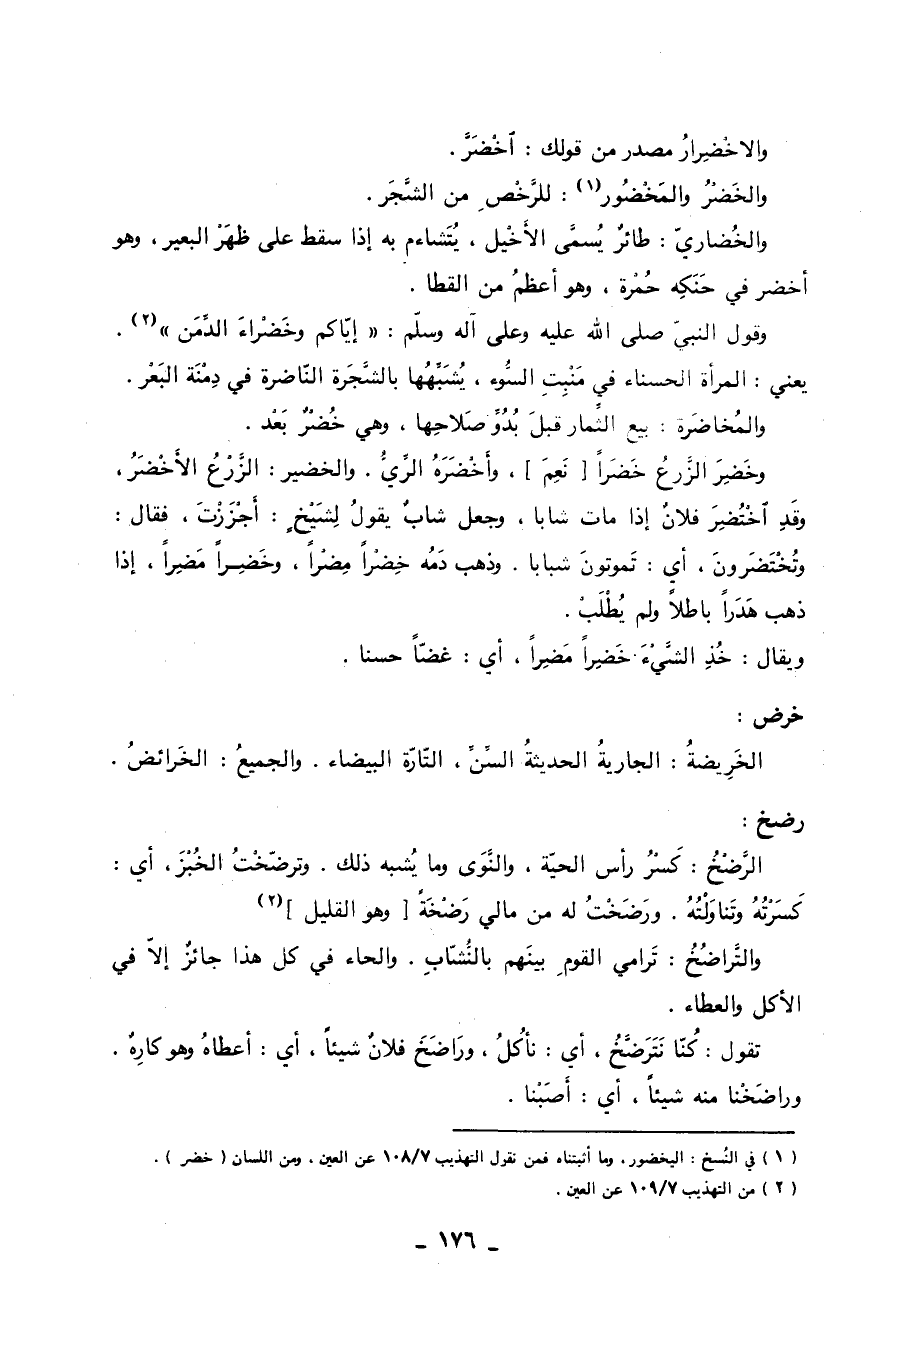 والاخْضِيرارُ مصدر من قولك : ٱخْضَرَّ .
والخَضْرُ والمَخْضُور(١) : للرَّخْصِ من الشَّجَر .
والخُضاريّ : طائرٌ يُسمَّى الأَخْيل ، يُتَشاءم به إذا سقط على ظهَرْ البعير ، وهو
أخضر في حَنَكِه حُمْرة ، وهو أعظمُ من القطا .
وقول النبيّ صلى الله عليه وعلى آله وسلّم : « إيّاكم وخَضْراءَ الدِّمَن »(٢) .
يعني : المرأة الحسناء في مَنْبِتِ السُّوء ، يُشبِّهُها بالشَّجَرة النّاضرة في دِمْنَة البَعْر .
والمُخاضَرة : بيع الثِّمار قبلَ بُدُوِّ صَلاحِها ، وهي خُضْرٌ بَعْد .
وخَضِرَ الزَّرعُ خَضَراً [ نَعِمَ ] ، وأَخْضَرَهُ الرِّيُّ . والخضير : الزَّرْعُ الأَخْضَرُ ،
وقَدِ ٱخْتُضِرَ فلانٌ إذا مات شابا ، وجعل شابٌ يقولُ لِشَيْخٍ : أَجْزَزْتَ ، فقال :
وتُخْتَضَرونَ ، أي : تَموتونَ شبابا . وذهب دَمُه خِضْراً مِضْراً ، وخَضِراً مَضِراً ، إذا
ذهب هَدَراً باطلاً ولم يُطْلَبْ .
ويقال : خُذِ الشَّيْءَ خَضِراً مَضِراً ، أي : غضّاً حسنا .
خرض :
الخَرِيضةُ : الجاريةُ الحديثةُ السِّنِّ ، التّارّة البيضاء . والجميعُ : الخَرائضُ .
رضخ :
الرَّضْخُ : كَسْرُ رأس الحيّة ، والنَّوَى وما يُشبه ذلك . وترضّخْتُ الخُبْزَ ، أي :
كَسَرْتُهُ وتَناوَلْتُهُ . ورَضَخْتُ له من مالي رَضْخَةً [ وهو القليل ](٢)
والتَّراضُخُ : تَرامي القومِ بينَهم بالنُّشّابِ . والحاء في كل هذا جائزٌ إلاّ في
الأكل والعطاء .
تقول : كُنّا نَتَرَضَّخُ ، أي : نأكُلُ ، ورَاضَخَ فلانٌ شيئاً ، أي : أعطاهُ وهو كارِهٌ .
وراضَخْنا منه شيئاً ، أي : أَصَبْنا .
( ١ ) في النُسخ : اليخضور ، وما أثبتناه فمن نقول التهذيب ١٠٨/٧ عن العين ، ومن اللسان ( خضر ) .
( ٢ ) من التهذيب ١٠٩/٧ عن العين .
ـ ١٧٦ ـ